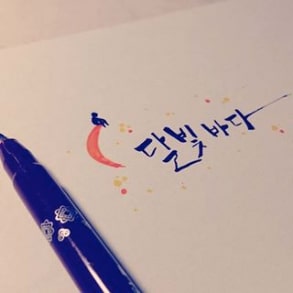 달빛바다